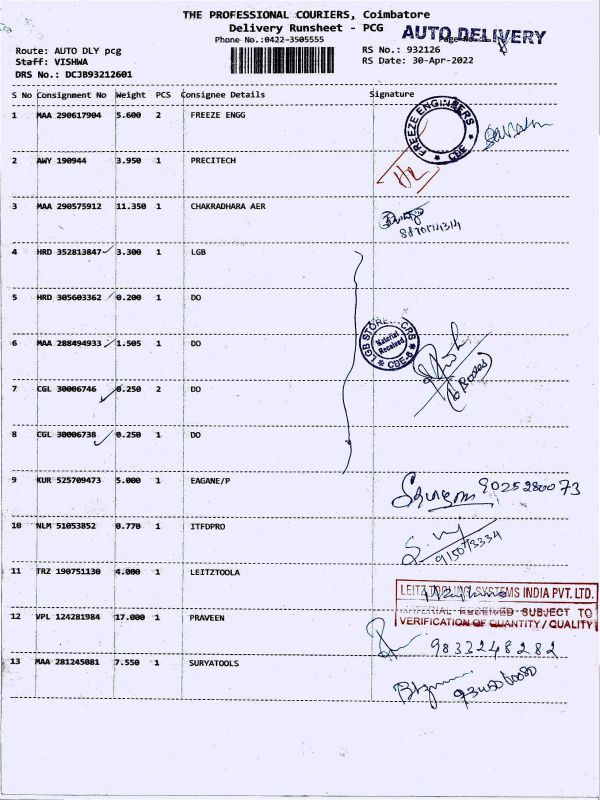 THE PROFESSIONAL COURIERS, Coimbatore
Delivery Runsheet - PCG
AUTO DELIVERY
Phone No.:0422-3505555
Route: AUTO DLY pcg
RS No.: 932126
Staff: VISHWA
RS Date: 30-Apr-2022
DRS No.: DCJB93212601
S No Consignment No Weight PCS Consignee Details Signature
1 MAA 290617904 5.600 2 FREEZE ENGG
FREEZE ENGINEERS
CBE
2 AWY 190944 3.950 1 PRECITECH
3 MAA 290575912 11.350 1 CHAKRADHARA AER
4 HRD 352813847 3.300 1 LGB
5 HRD 305603362 0.200 1 DO
6 MAA 288494933 1.505 1 DO
Material Received
CBE-6
7 CGL 30006746 0.250 2 DO
8 CGL 30006738 0.250 1 DO
9 KUR 525709473 5.000 1 EAGANE/P
9025280073
10 NLM 51053852 0.770 1 ITFDPRO
11 TRZ 190751130 4.000 1 LEITZTOOLA
LEITZ TOOLING SYSTEMS INDIA PVT. LTD.
MATERIAL RECEIVED SUBJECT TO
VERIFICATION OF QUANTITY/QUALITY
12 VPL 124281984 17.000 1 PRAVEEN
9833248282
13 MAA 281245081 7.550 1 SURYATOOLS